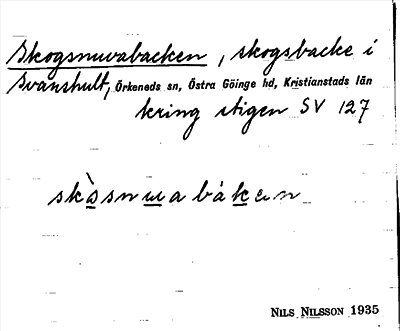 Skogsnuvabacken, skogsbacke i
Svanshult, Örkeneds sn, Östra Göinge hd, Kristianstads län
kring stigen SV 127
skàssnuabákan
NILS NILSSON 1935